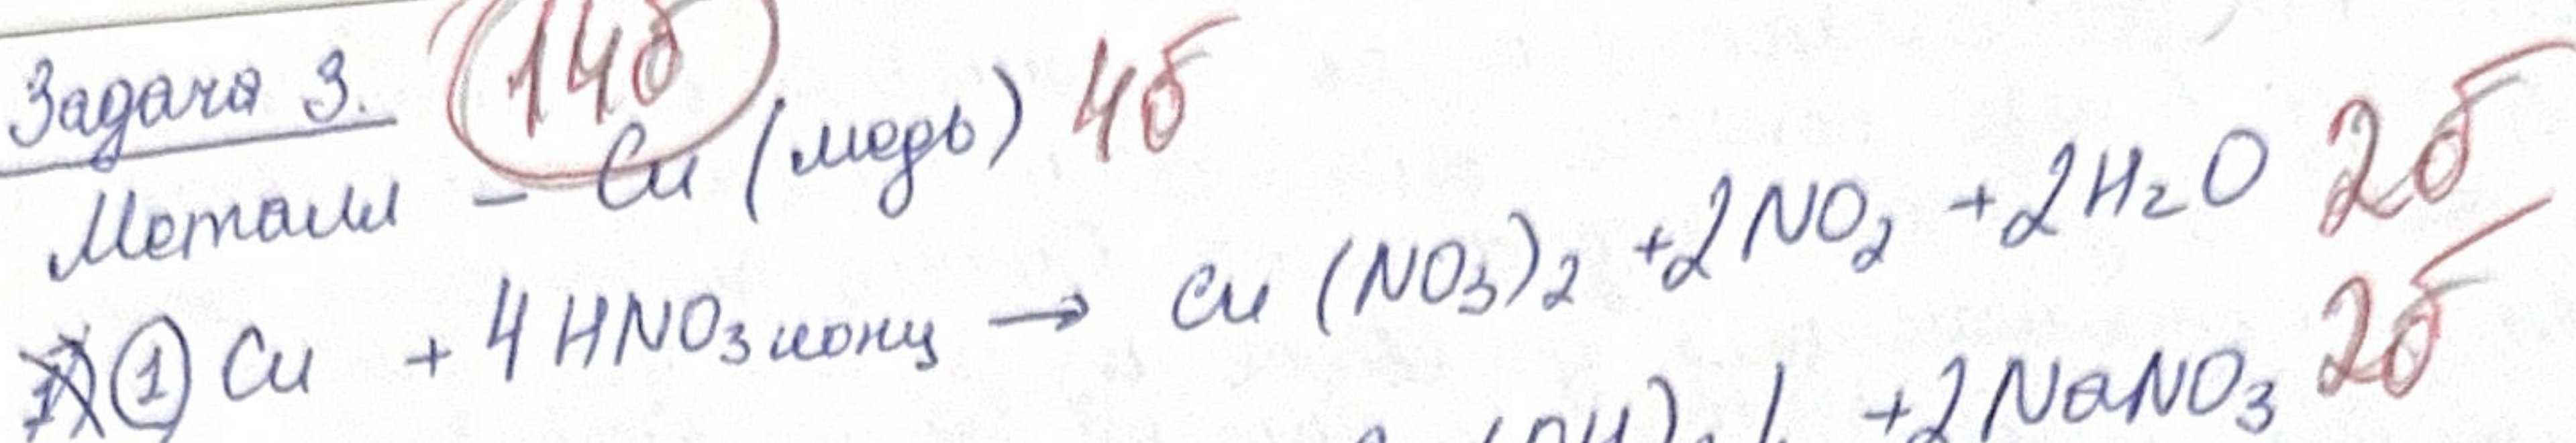 Задача 3. 14б
Металл - Cu (медь) 4б
① Cu + 4HNO₃ конц → Cu(NO₃)₂ + 2NO₂ + 2H₂O 2б
(OH)₂↓ + 2NaNO₃ 2б